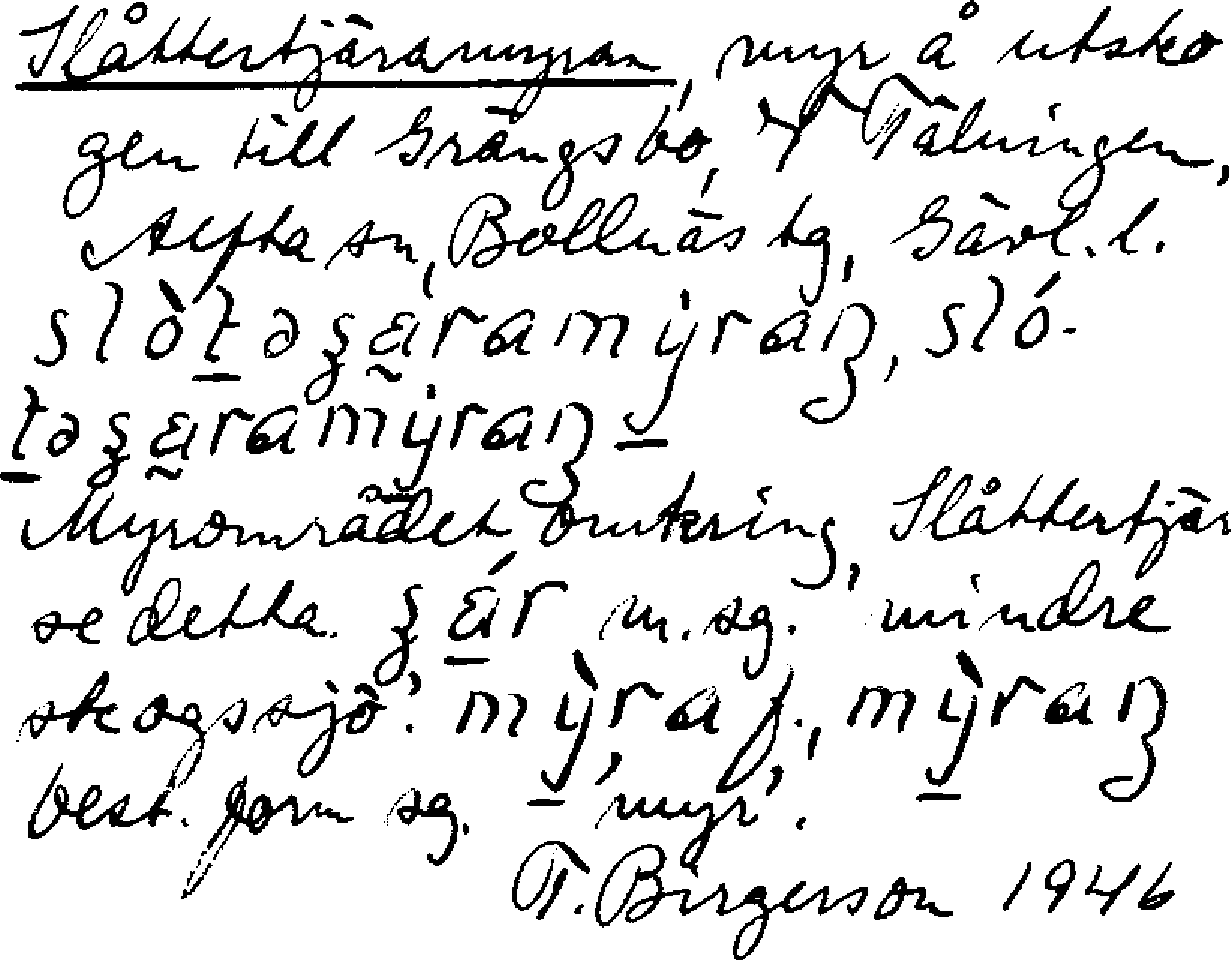 Slåttertjäramyran, myr å utsko
gen till Grängsbo, Y Tälningen,
Alfta sn, Bollnäs tg, Gävl. l.
slòtəʂäramýraɲ, sló-
təʂäramýraɲ
Myrområdet omkring Slåttertjär
se detta. ʂä́r m. sg. 'mindre
skogssjö'. mỳra f., mỳraɲ
best. form sg. 'myr'.
T. Birgerson 1946